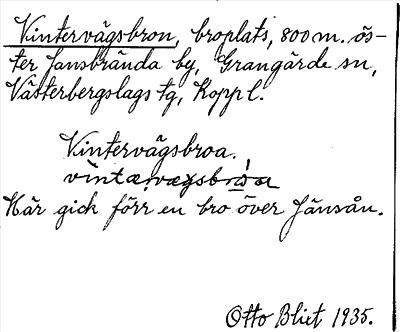 Vintervägsbron, broplats, 800 m. ös-
ter Jansbrända by, Grangärde sn,
Västerbergslags tg, Koppl.
Vintervägsbroa.
Här gick förr en bro över Jänsån.
Otto Blixt 1935.